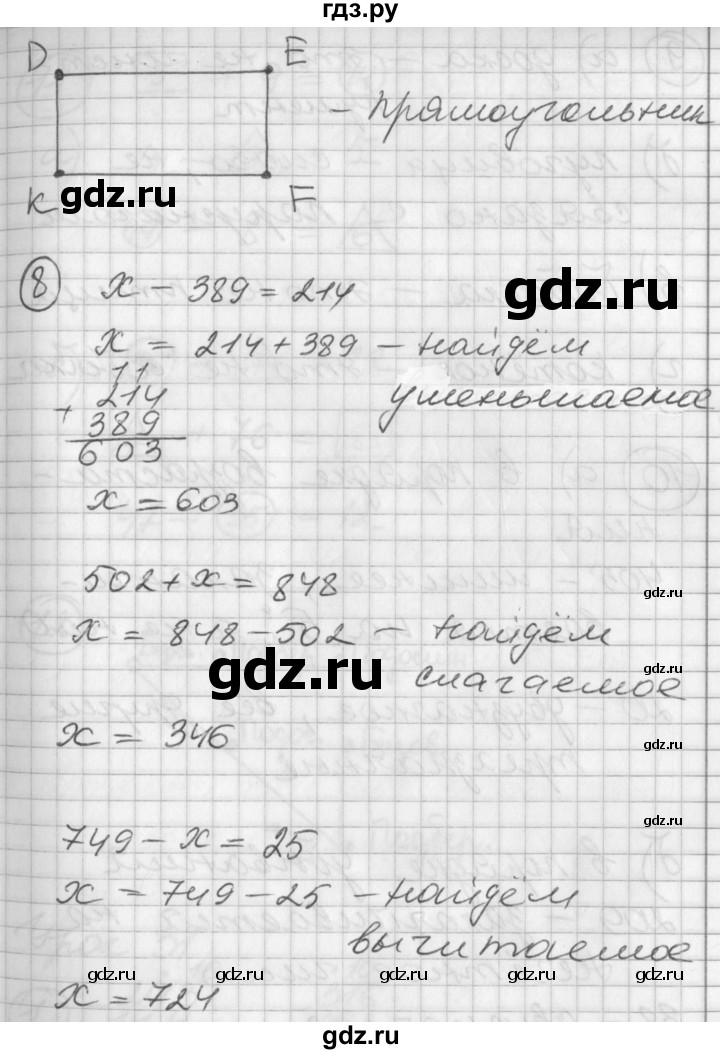 гдз.ру
D E
– прямоугольник
K F
gdz.ru
8 x – 389 = 214
gdz.ru
x = 214 + 389 – найдём
уменьшаемое
11
214
+
389
603
x = 603
502 + x = 848
gdz.ru
x = 848 – 502 – найдём
слагаемое
gdz.ru
gdz.ru
x = 346
gdz.ru
gdz.ru
749 – x = 25
x = 749 – 25 – найдём
вычитаемое
gdz.ru gdz.ru gdz.ru gdz.ru
x = 724
gdz.ru